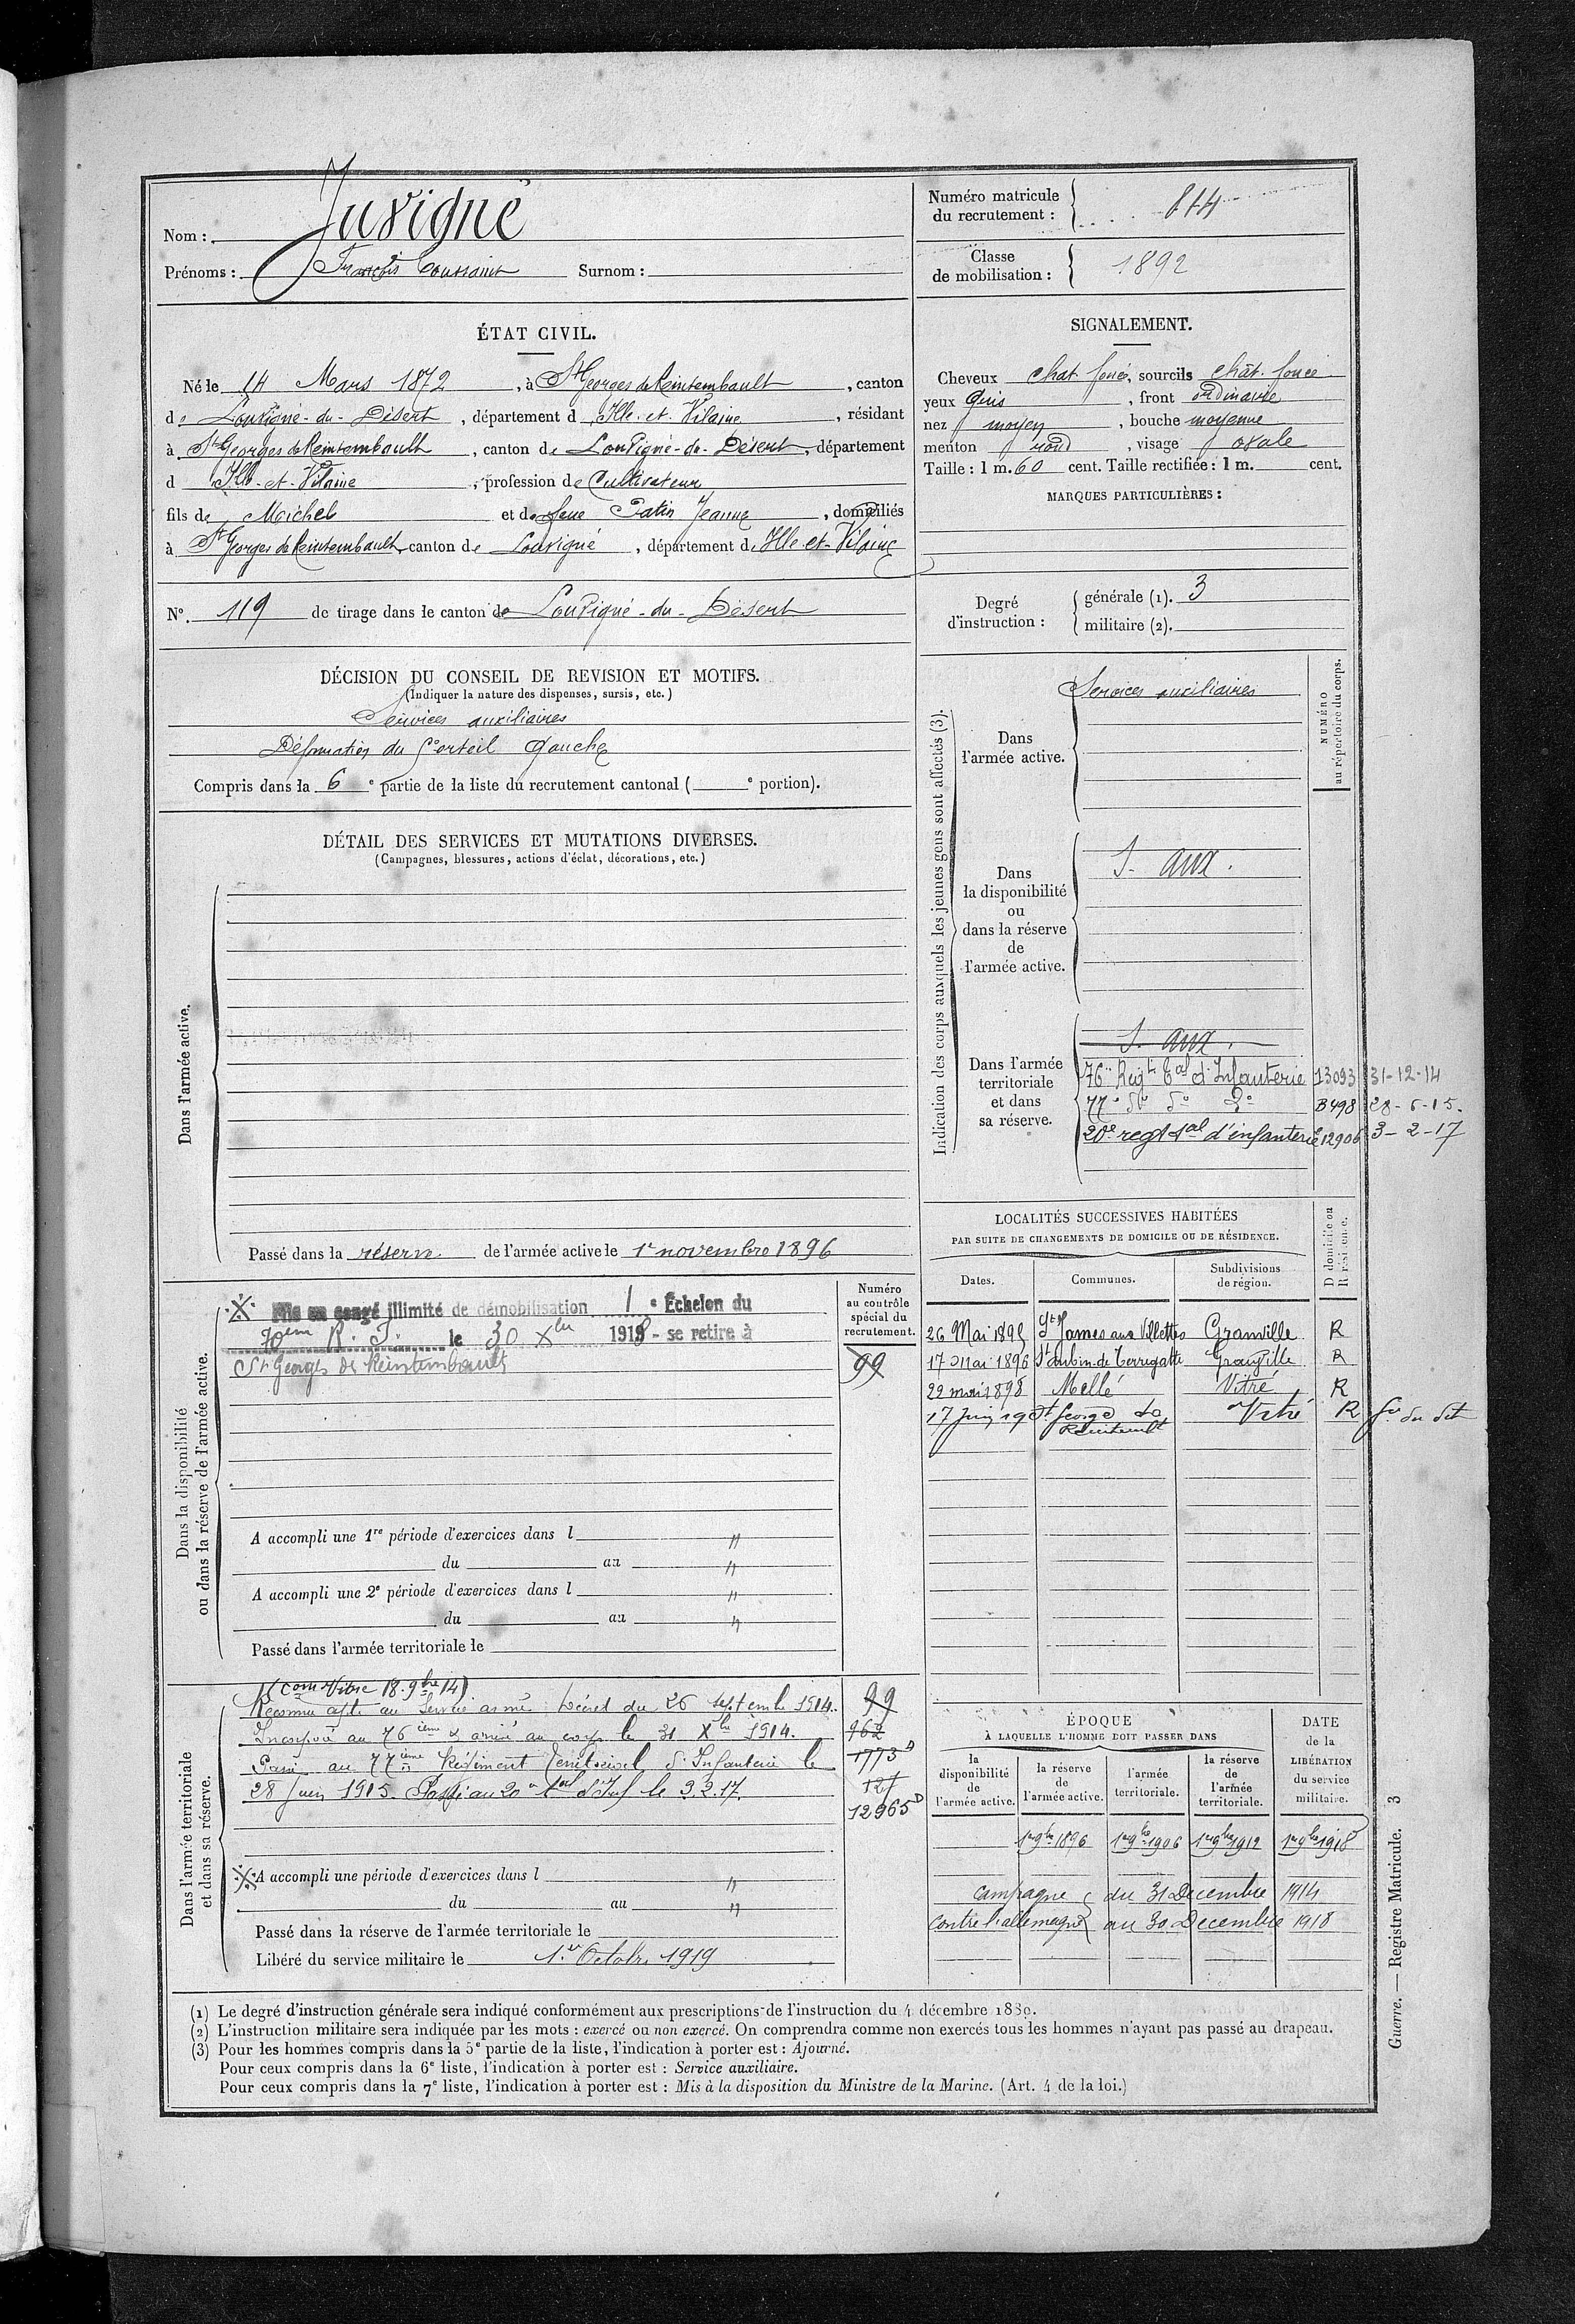 Nom : Juvigné
Prénoms : François Toussaint Surnom :
Numéro matricule du recrutement : 814
Classe de mobilisation : 1892
ÉTAT CIVIL.
Né le 14 Mars 1872, à St Georges de Reintembault, canton
de Louvigné-du-Désert, département d'Ille-et-Vilaine, résidant
à St Georges de Reintembault, canton de Louvigné-du-Désert, département
d Ille-et-Vilaine, profession de Cultivateur
fils de Michel et de feue Patin Jeanne, domiciliés
à St Georges de Reintembault, canton de Louvigné, département d Ille-et-Vilaine
N°. 119 de tirage dans le canton de Louvigné-du-Désert
SIGNALEMENT.
Cheveux chat. foncé, sourcils chât. foncé
yeux Gris, front ordinaire
nez moyen, bouche moyenne
menton rond, visage ovale
Taille : 1 m. 60 cent. Taille rectifiée : 1 m. cent.
MARQUES PARTICULIÈRES :
Degré d'instruction :
générale (1). 3
militaire (2).
DÉCISION DU CONSEIL DE REVISION ET MOTIFS.
(Indiquer la nature des dispenses, sursis, etc.)
Services auxiliaires
Déformation du Gos orteil Gauche
Compris dans la 6e partie de la liste du recrutement cantonal ( e portion).
DÉTAIL DES SERVICES ET MUTATIONS DIVERSES.
(Campagnes, blessures, actions d'éclat, décorations, etc.)
Dans l'armée active.
Passé dans la réserve de l'armée active le 1r novembre 1896
Indication des corps auxquels les jeunes gens sont affectés (3).
NUMÉRO
au répertoire du corps.
Dans
l'armée active.
Services auxiliaires
Dans
la disponibilité
ou
dans la réserve
de
l'armée active.
S. aux.
Dans l'armée
territoriale
et dans
sa réserve.
S. aux.
76e Regt tal d'Infanterie 13093 31-12-14
77e do do do B498 28-6-15.
20e regt tal d'infanterie 12906 3-2-17
Dans la disponibilité
ou dans la réserve de l'armée active.
Numéro
au contrôle
spécial du
recrutement.
Mis en congé illimité de démobilisation 1e Échelon du
70em R.I. le 30 Xbre 1918 - se retire à
St Georges de Reintembault
99
A accompli une 1re période d'exercices dans l "
du au "
A accompli une 2e période d'exercices dans l "
du au "
Passé dans l'armée territoriale le
LOCALITÉS SUCCESSIVES HABITÉES
PAR SUITE DE CHANGEMENTS DE DOMICILE OU DE RÉSIDENCE.
Dates. Communes. Subdivisions de région. D domicile ou R résidence.
26 Mai 1895 St James aux Villettes Granville R
17 Mai 1896 St Aubin de Terregatte Granville R
22 mars 1898 Mellé Vitré R
17 Juin St George de Reintembt Vitré R
Dans l'armée territoriale
et dans sa réserve.
(Con Vitré 18.9bre 14)
Reconnu apte au Service armé Décret du 26 septembre 1914.
Incorporé au 76ième & arrivé au corps le 31 Xbre 1914.
Passé au 77ième Régiment Territorial d'Infanterie le
28 Juin 1915. Passé au 20e tal d'Inf le 3.2.17.
99
962
1773D
12965D
A accompli une période d'exercices dans l "
du au "
Passé dans la réserve de l'armée territoriale le
Libéré du service militaire le 1er Octobre 1919
ÉPOQUE
À LAQUELLE L'HOMME DOIT PASSER DANS
la disponibilité de l'armée active.
la réserve de l'armée active.
l'armée territoriale.
la réserve de l'armée territoriale.
DATE de la LIBÉRATION du service militaire.
1er 9bre 1896 1er 9bre 1906 1er 9bre 1912 1er 9bre 1918
campagne du 31 Decembre 1914
contre l'allemagne au 30 Decembre 1918
(1) Le degré d'instruction générale sera indiqué conformément aux prescriptions de l'instruction du 4 décembre 1889.
(2) L'instruction militaire sera indiquée par les mots : exercé ou non exercé. On comprendra comme non exercés tous les hommes n'ayant pas passé au drapeau.
(3) Pour les hommes compris dans la 5e partie de la liste, l'indication à porter est : Ajourné.
Pour ceux compris dans la 6e liste, l'indication à porter est : Service auxiliaire.
Pour ceux compris dans la 7e liste, l'indication à porter est : Mis à la disposition du Ministre de la Marine. (Art. 4 de la loi.)
Guerre. — Registre Matricule. 3